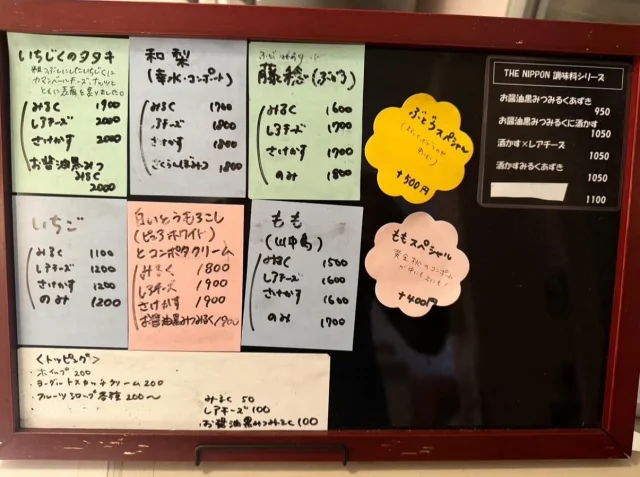 いちじくのタタキ
粗つぶしにしたいちじくに
カマンベールチーズ、ナッツと
ともに
みるく 1900
レアチーズ 2000
さけかす 2000
お醤油黒みつ
みるく
2000
和梨
(幸水・コンポート)
みるく 1700
レアチーズ 1800
さけかす 1800
1800
藤稔(ぶどう)
みるく 1600
レアチーズ 1700
さけかす 1700
のみ 1800
ぶどうスペシャル
+500円
THE NIPPON 調味料シリーズ
お醤油黒みつみるくあずき
950
お醤油黒みつみるくに酒かす
1050
酒かす×レアチーズ
1050
酒かすみるくあずき
1050
1100
いちご
みるく 1100
レアチーズ 1200
さけかす 1200
のみ 1200
白いとうもろこし
(ピュアホワイト)
とコンポタクリーム
みるく 1800
レアチーズ 1900
さけかす 1900
お醤油黒みつみるく 1900
もも
(川中島)
みるく 1500
レアチーズ 1600
さけかす 1600
のみ 1700
ももスペシャル
黄金桃のコンポート
+400円
<トッピング>
・ホイップ 200
・ヨーグルトスカッチクリーム 200
・フルーツシロップ各種 200〜
みるく 50
レアチーズ 100
お醤油黒みつみるく 100